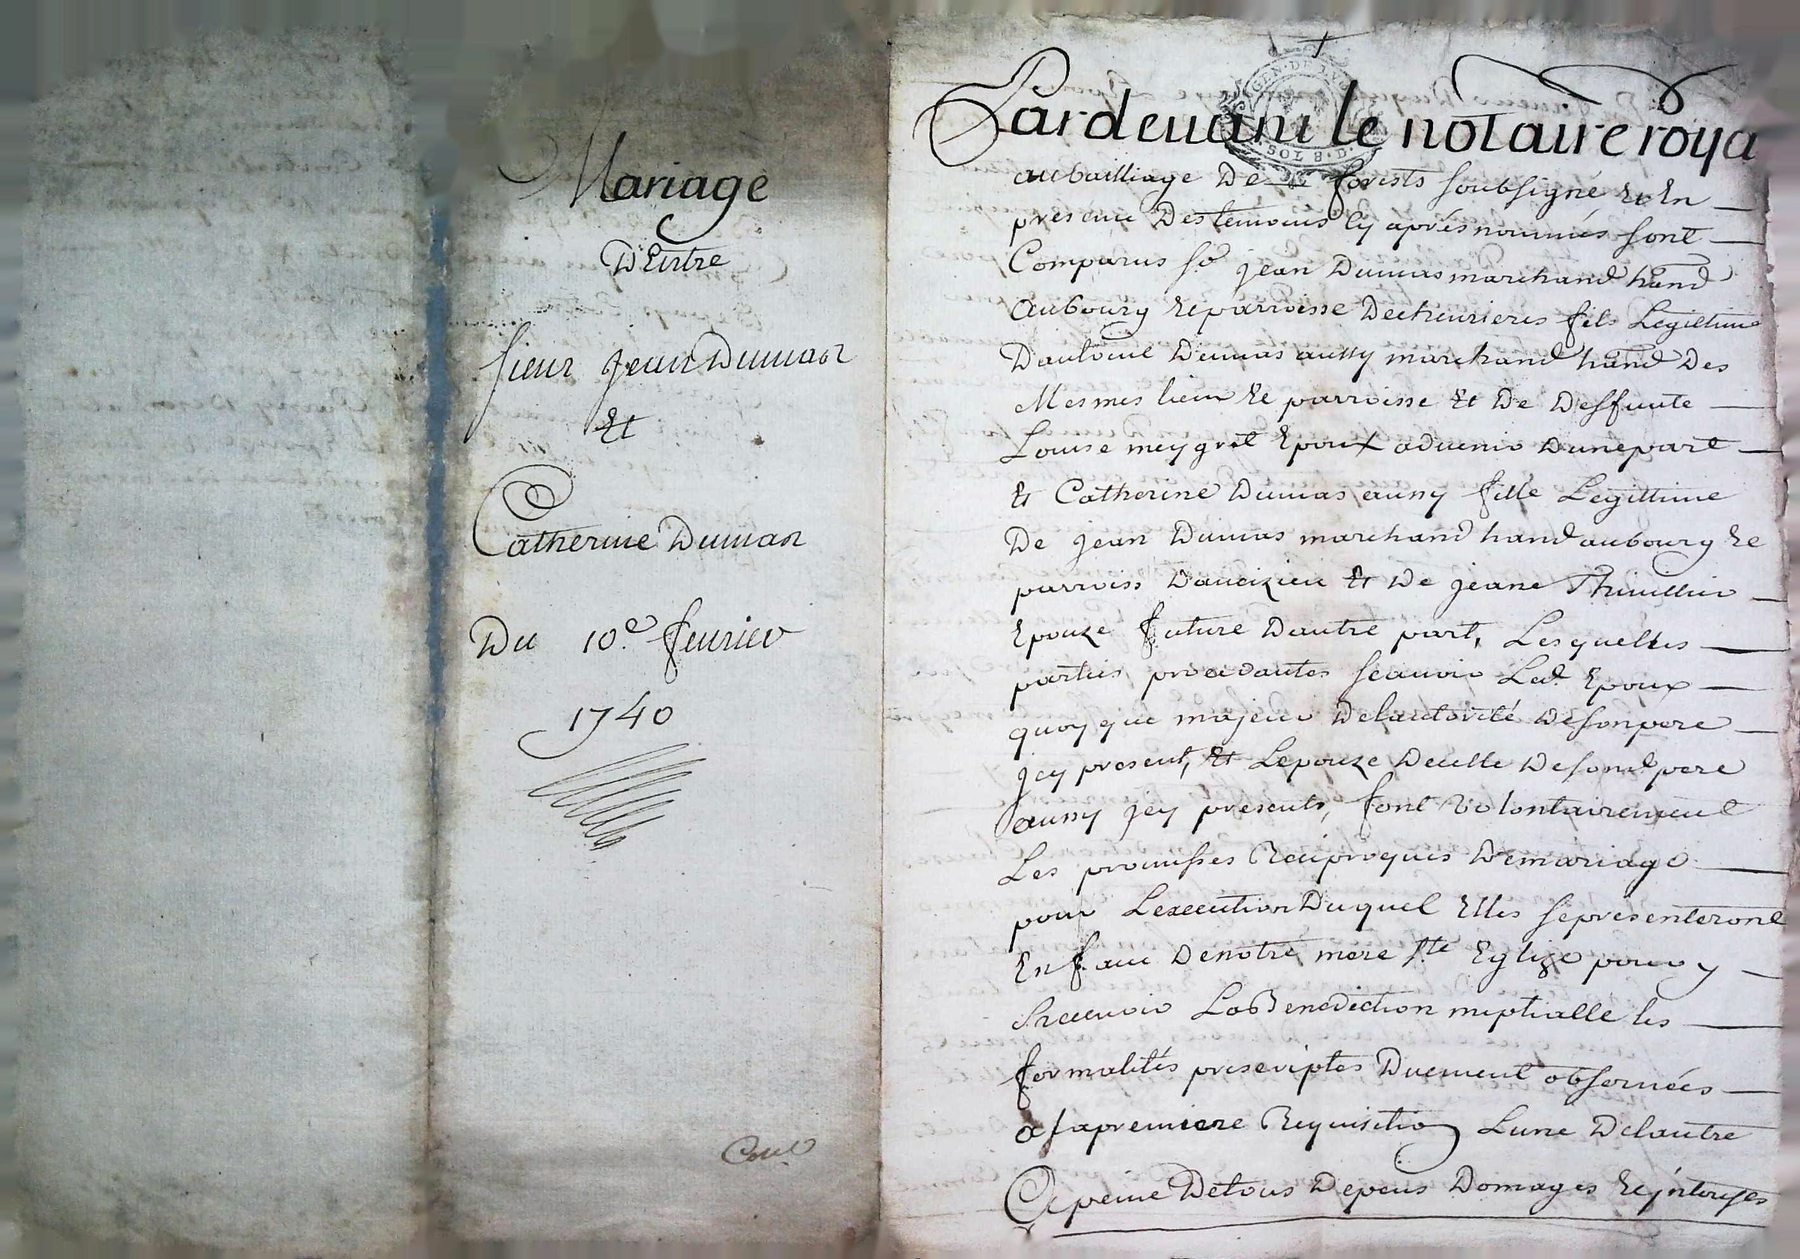 Mariage
D'Entre
sieur jean Dumas
Et
Catherine Dumas
Du 10e. fevrier
1740
Pardevant le notaire roya
GEN DE LYO
SOL 8 D
au bailliage De forests soubsigné Et En
presence Des temoins cy aprés nommés sont
Comparus sr jean Dumas marchand hand
au bourg Et parroisse Decheurieres fils Legittime
D'antoine Dumas aussy marchand hand Des
Mesmes lieu Et parroisse Et De Deffunte
Louise meygret Epoux aduenir Dune part
Et Catherine Dumas aussy fille Legittime
De jean Dumas marchand hand au bourg Et
parroiss Daveizieu Et De jeane Thiuillier
Epouze future Dautre part, Lesquelles
parties procedantes scauoir Led. Epoux
quoy que majeur De lautorité De son pere
jcy present, Et Lepouze De celle De sond. pere
aussy jcy present, font Volontairement
Les promisses Reciproques De mariage
pour Lexecution Duquel Elles se presenteront
En face De notre mere ste Eglize pour y
Receuoir La Benediction nuptialle les
formalités prescriptes Duement obseruées
a la premiere Requisition Lune De lautre
A peine De tous Depens Domages Et jnterests